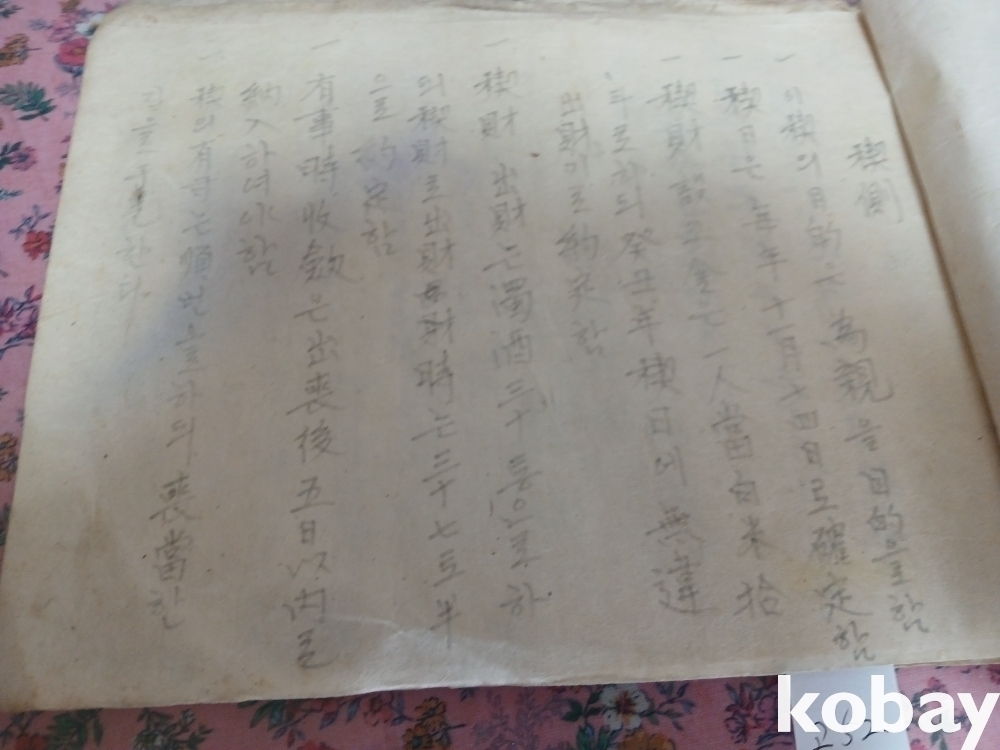 稧側
一 이 稧의 目的은 為親을 目的으로 함
一 稧日은 每年 十一月 十四日로 確定함
一 稧財設立金은 一人當白米拾
斗로 하되 癸丑年 稧日에 無違
出財이로 約定함
一 稧財 出財는 濁酒三十 등으로 하
의 稧財로 出財 時는 三十七도 半
으로 約定함
一 有事時 收斂은 出喪後 五日以內로
納入하여야 함
一 稧의 有事는 으로 하되 喪當한
kobay